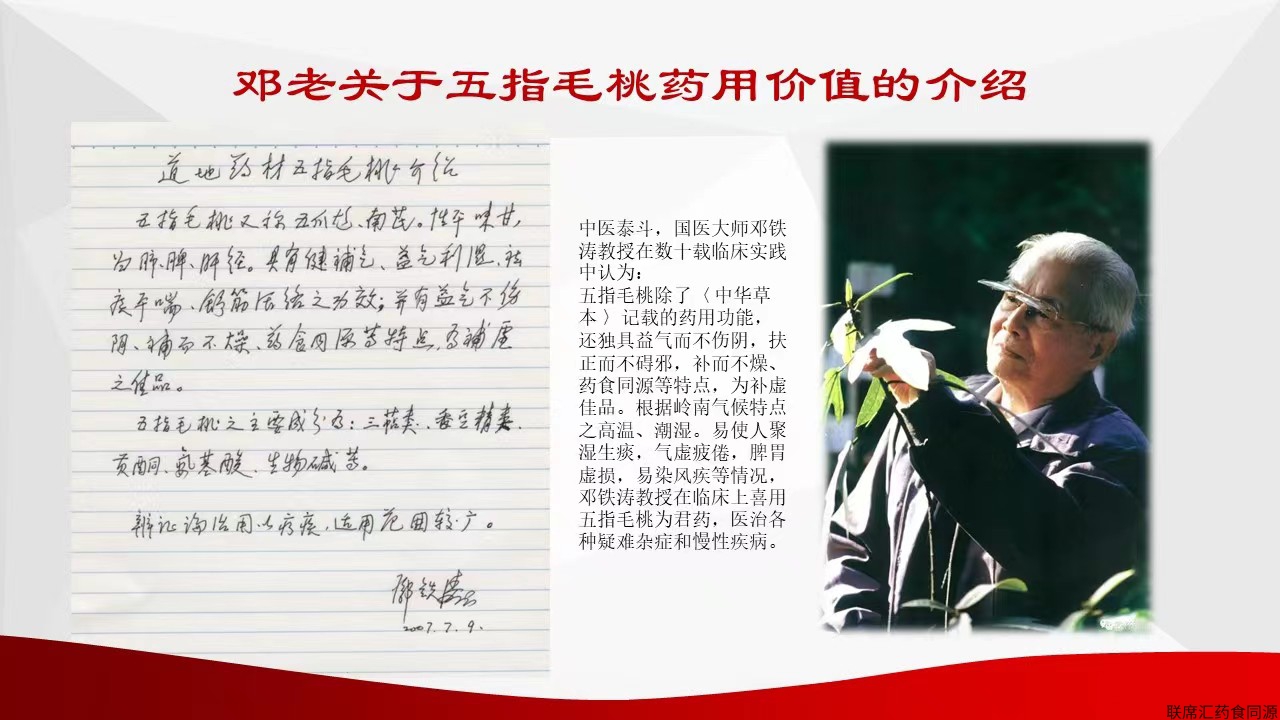 邓老关于五指毛桃药用价值的介绍
道地药材五指毛桃介绍
五指毛桃又称五爪龙、南芪。性平味甘,
为肺、脾、肝经。具有健补气、益气利湿、祛
痰平喘、舒筋活络之功效;并有益气不伤
阴、补而不燥、药食同源等特点,为补虚
之佳品。
五指毛桃之主要成分为:三萜类、香豆精类、
黄酮、氨基酸、生物碱等。
辨证论治用以疗疾,适用范围较广。
邓铁涛
2007.7.9.
中医泰斗,国医大师邓铁
涛教授在数十载临床实践
中认为:
五指毛桃除了〈中华草
本〉记载的药用功能,
还独具益气而不伤阴,扶
正而不碍邪,补而不燥、
药食同源等特点,为补虚
佳品。根据岭南气候特点
之高温、潮湿。易使人聚
湿生痰,气虚疲倦,脾胃
虚损,易染风疾等情况,
邓铁涛教授在临床上喜用
五指毛桃为君药,医治各
种疑难杂症和慢性疾病。
联席汇药食同源